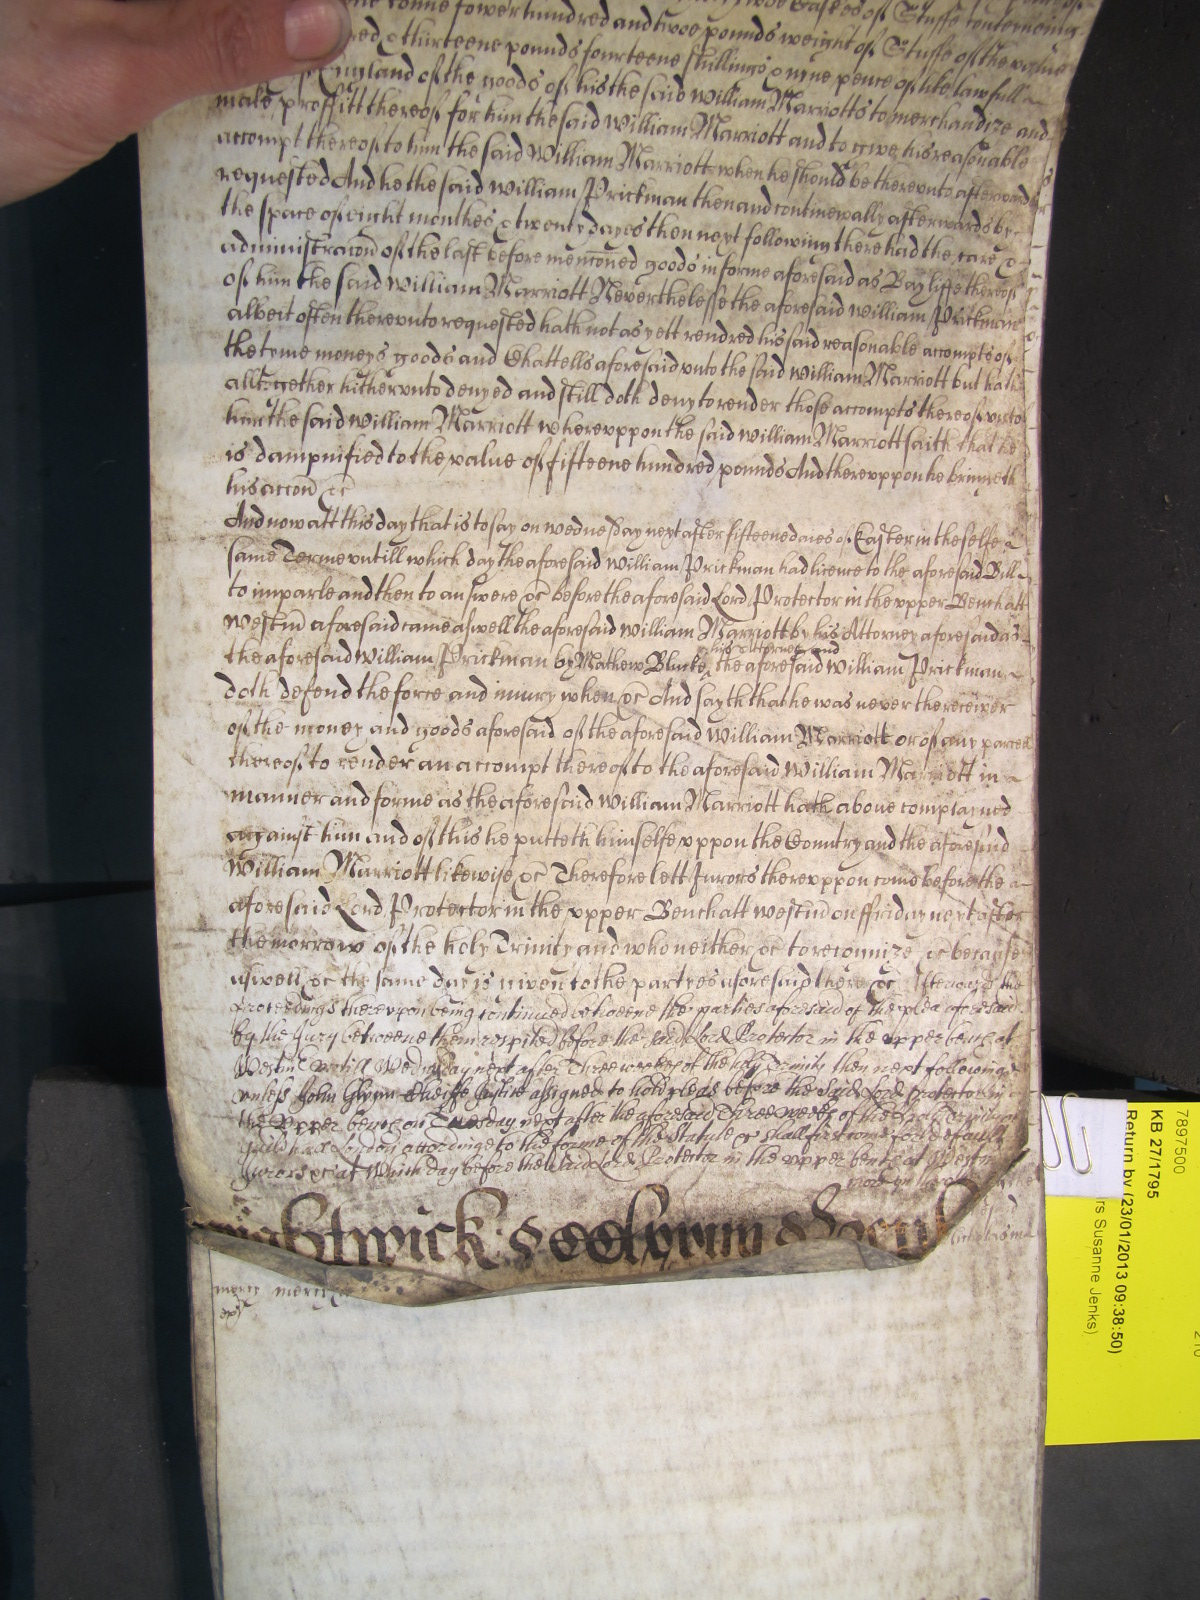 Tonne fower hundred and twoe pounds weight of Stuffe of the value
& thirteene pounds fourteene shillings & nyne pence of like lawfull
England of the goods of his the said William Marriotts to merchandize and
make proffitt thereof for him the said William Marriott and to give his reasonable
accompt thereof to him the said William Marriott when he should be therevnto afterwards
requested And he the said William Prickman then and continewally afterwards by
the space of eight monthes & twenty dayes then next following there had the care &
administracon of the last before mencioned goods in forme aforesaid as Bayliffe thereof
of him the said William Marriott Neverthelesse the aforesaid William Prickman
albeit often therevnto requested hath not as yett rendred his said reasonable accompte of
the tyme moneys goods and Chattells aforesaid vnto the said William Marriott but hath
alltogether hithervnto denyed and still doth deny to render those accompts thereof vnto
him the said William Marriott wherevppon the said William Marriott saith that he
is dampnified to the value of fifteene hundred pounds And therevppon he bringeth
his accon &c
And now att this day that is to say on Wednesday next after fifteene daies of Easter in the selfe
same Terme vntill which day the aforesaid William Prickman had licence to the aforesaid Bill
to imparle and then to answere &c before the aforesaid Lord Protector in the vpper Bench att
Westm aforesaid came aswell the aforesaid William Marriott by his Attorney aforesaid as
the aforesaid William Prickman by Mathew Blucke his Attorney and the aforesaid William Prickman
doth defend the force and iniury when &c And sayth that he was never the receiver
of the money and goods aforesaid of the aforesaid William Marriott or of any parcell
thereof to render an accompt thereof to the aforesaid William Marriott in
manner and forme as the aforesaid William Marriott hath above complayned
against him and of this he putteth himselfe vppon the Country and the aforesaid
William Marriott likewise &c Therefore lett Jurors therevppon come before the
aforesaid Lord Protector in the vpper Bench att Westm on ffriday next after
the morrow of the holy Trinity and who neither &c to recognize &c because
aswell &c the same day is given to the partyes aforesaid there &c Afterwards the
Proceedings therevpon being continued betweene the parties aforesaid of the plea aforesaid
by the Jury betweene them respited before the said Lord Protector in the vpper bench at
Westm vntill Wednesday next after Three weekes of the holy Trinity then next following
vnless John Glynn Cheiffe Justice assigned to hold pleas before the said Lord Protector in
the vpper bench on Tuesday next after the aforesaid Three weekes of the holy Trinity at
Guild hall London according to the forme of the Statute &c shall first come for default
Jurors &c at which day before the said Lord Protector in the vpper bench at Westm
mercy mercy
7897500
KB 27/1795
Return by (23/01/2013 09:38:50)
rs Susanne Jenks)